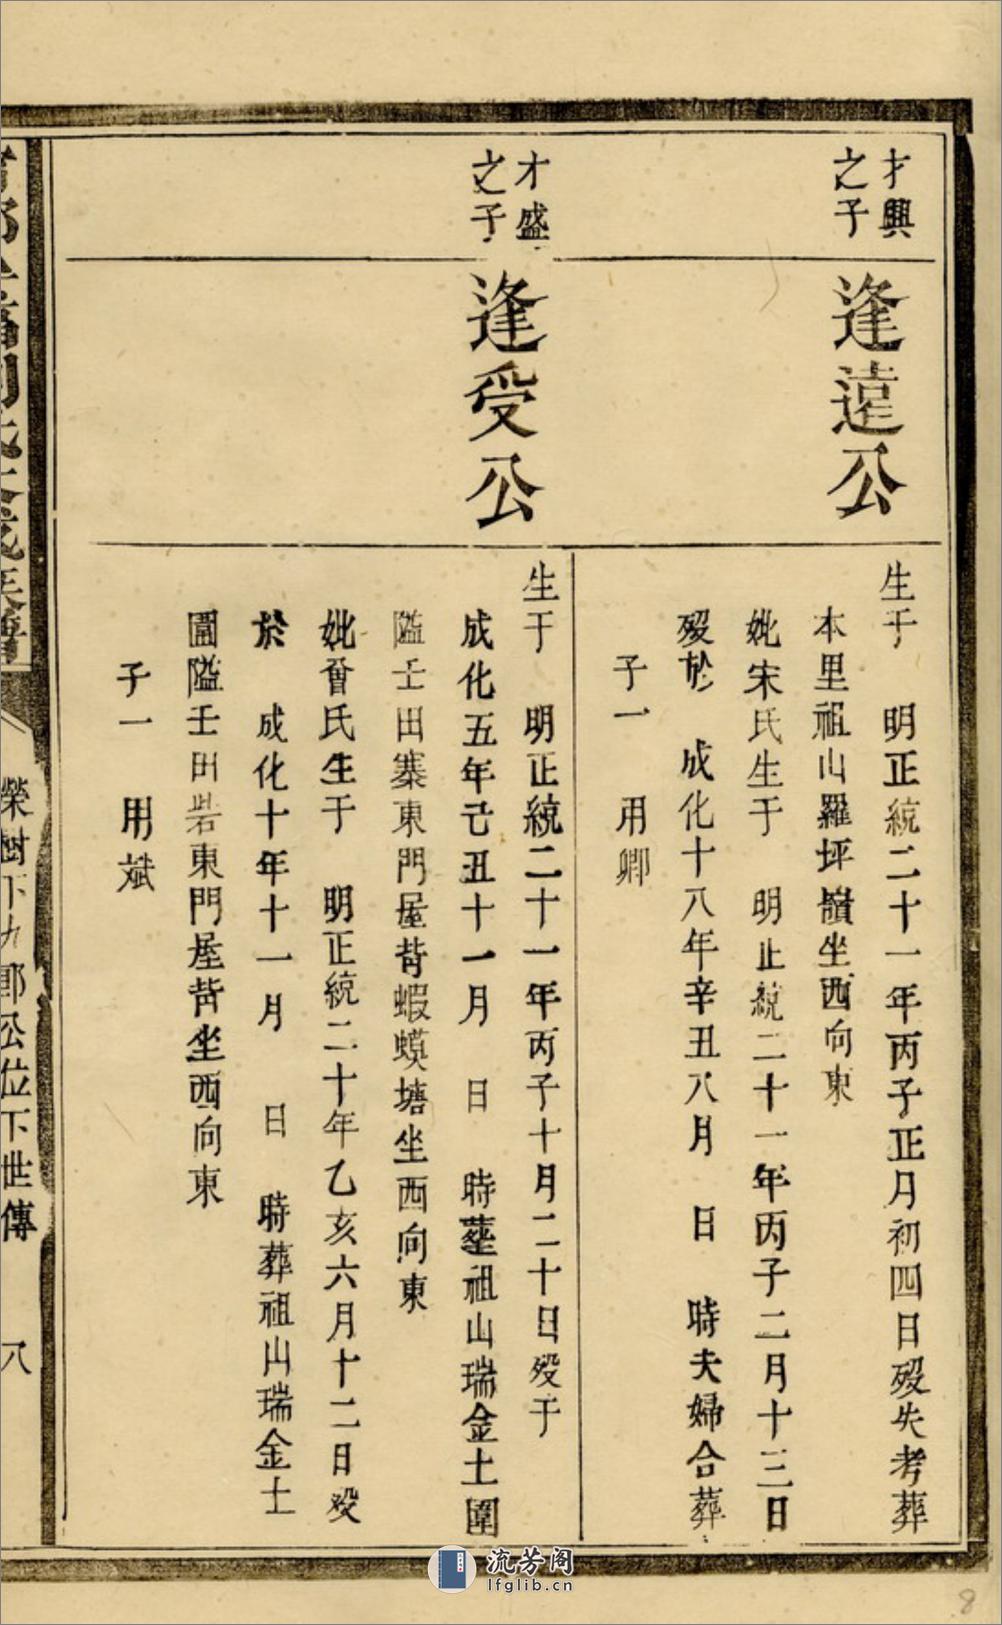 才興
之子
逢遠公
生于　明正統二十一年丙子正月初四日歿失考葬
本里祖山羅坪嶺坐西向東
妣宋氏生于　明正統二十一年丙子二月十三日
歿於　成化十八年辛丑八月　日　時夫婦合葬
子一　用卿
才盛
之子
逢受公
生于　明正統二十一年丙子十月二十日歿于
成化五年己丑十一月　日　時塟祖山瑞金土圍
隘壬田寨東門屋背蝦蟆塘坐西向東
妣曾氏生于　明正統二十年乙亥六月十二日歿
於　成化十年十一月　日　時葬祖山瑞金土
圍隘壬田砦東門屋背坐西向東
子一　用斌
榮樹下九郎公位下世傳　八
流芳阁
lfglib.cn
8